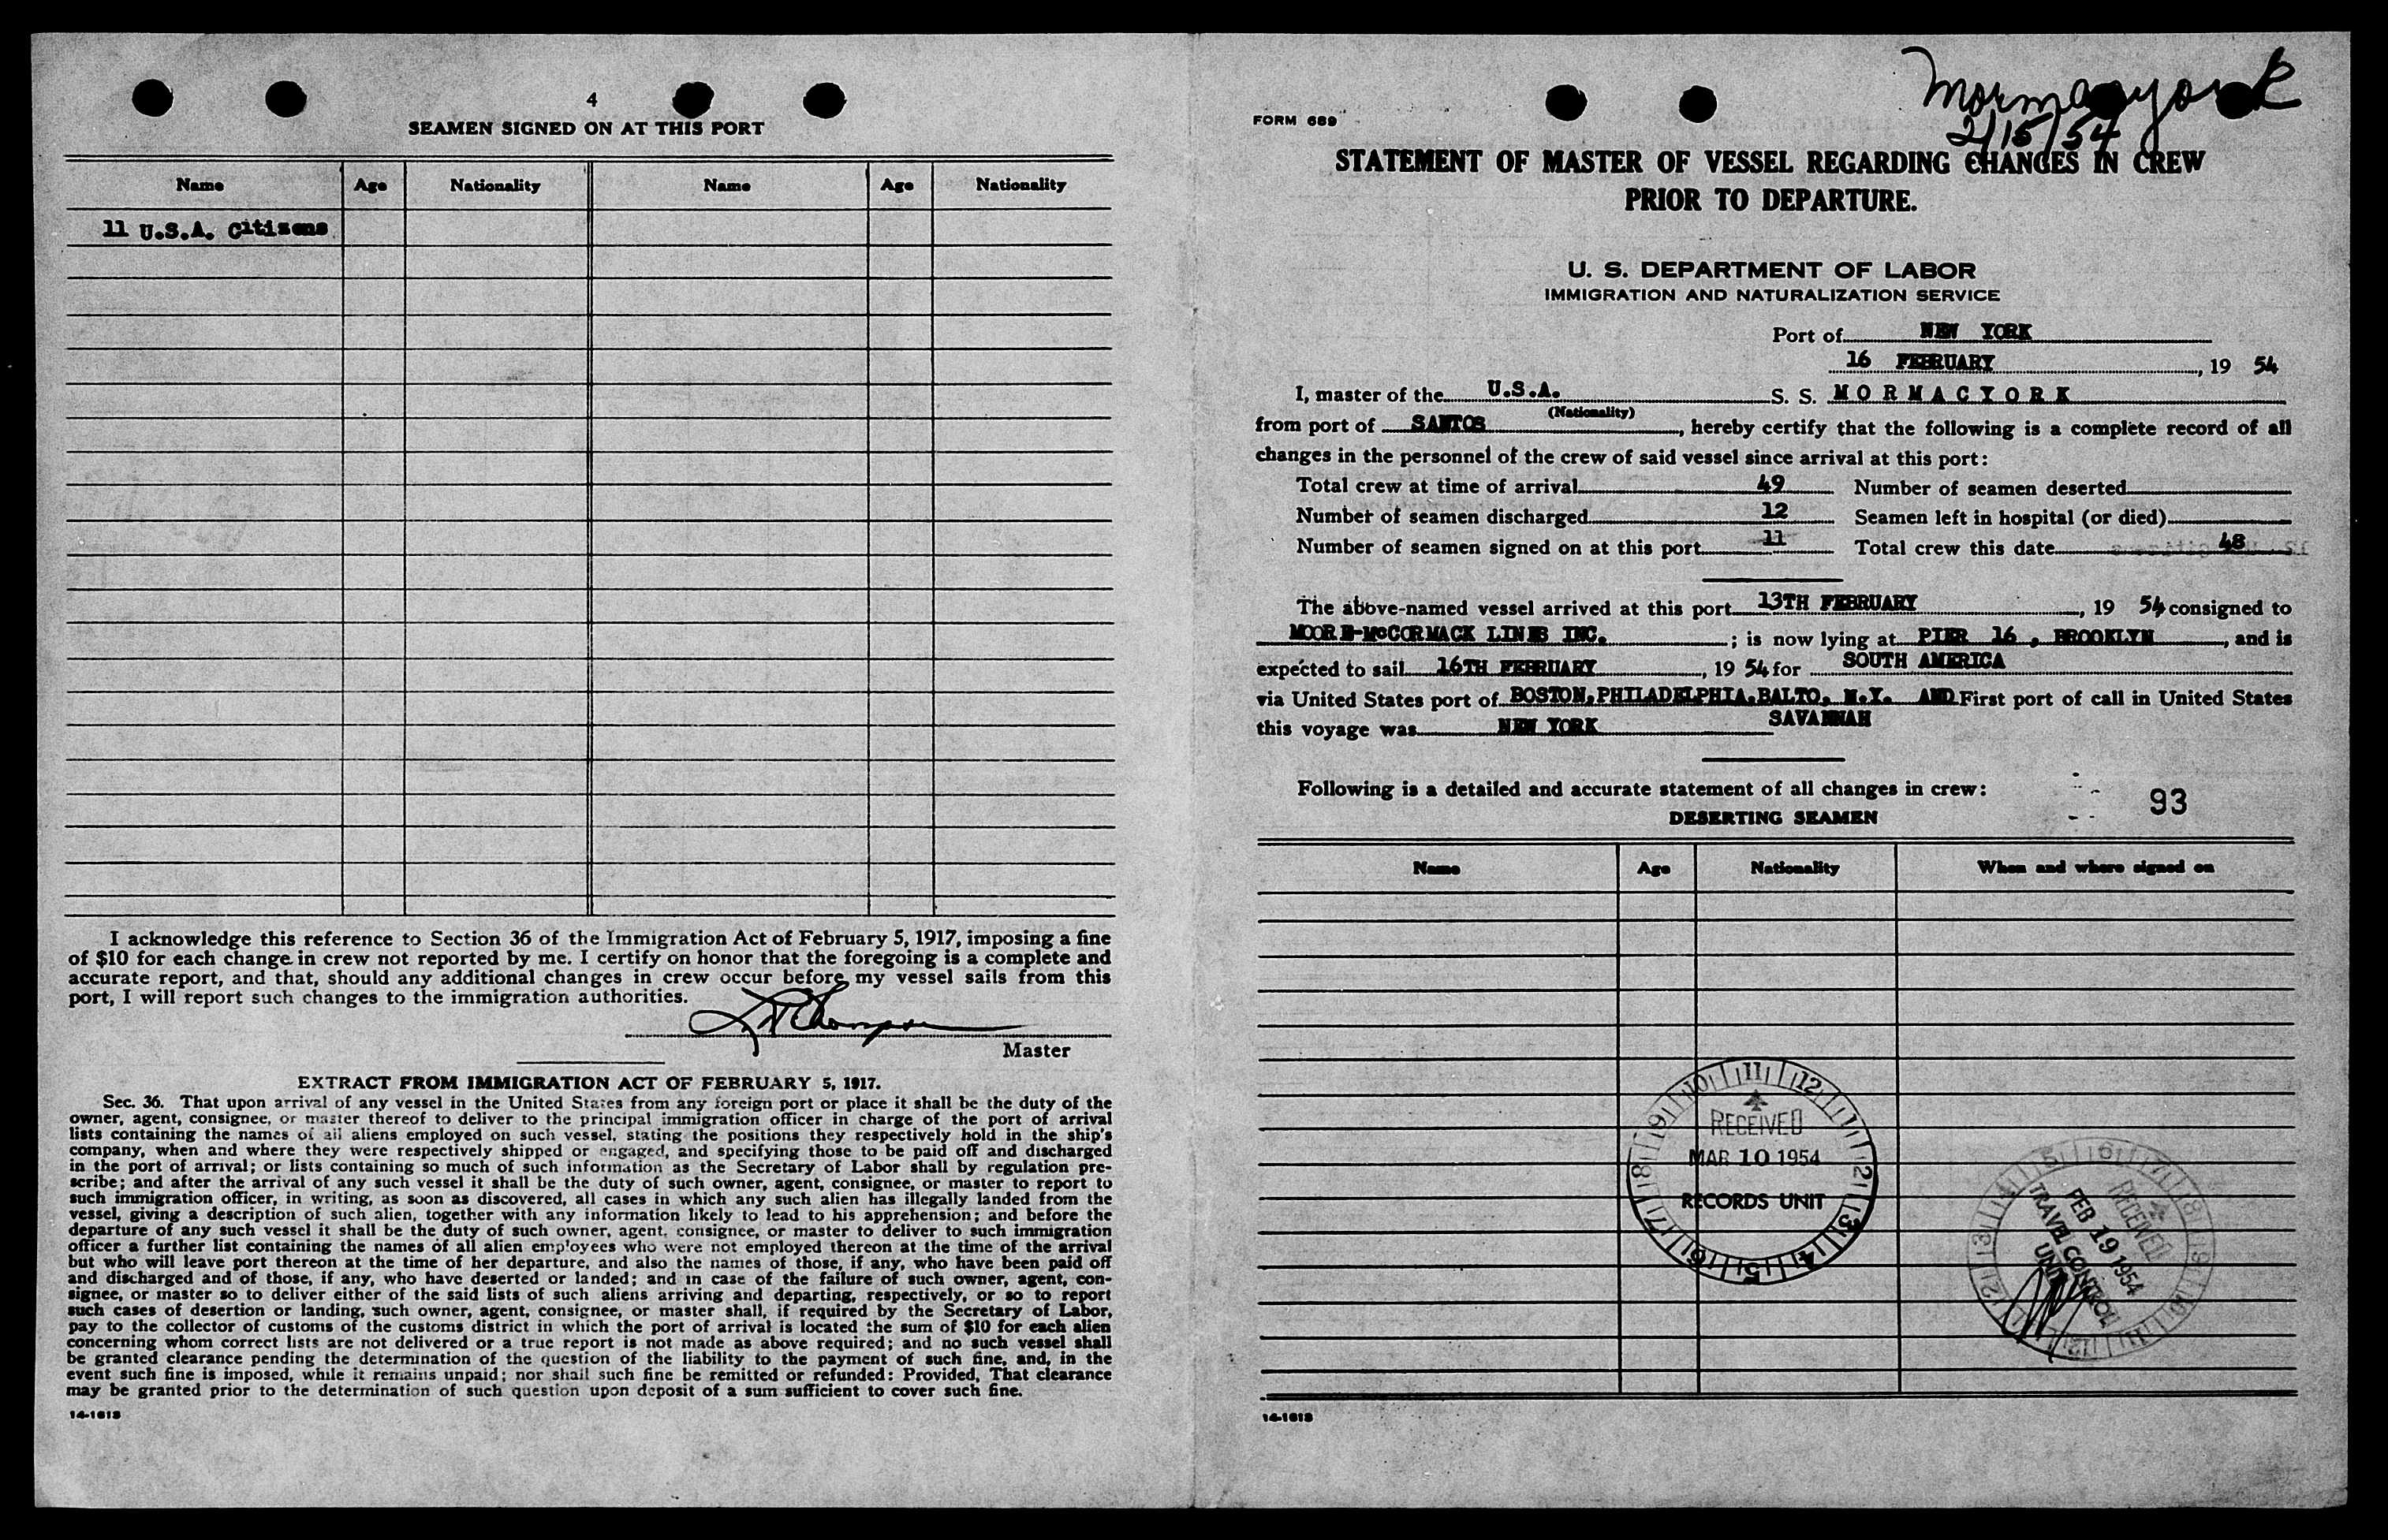 4
SEAMEN SIGNED ON AT THIS PORT
Name Age Nationality Name Age Nationality
11 U.S.A. Citizens
I acknowledge this reference to Section 36 of the Immigration Act of February 5, 1917, imposing a fine
of $10 for each change in crew not reported by me. I certify on honor that the foregoing is a complete and
accurate report, and that, should any additional changes in crew occur before my vessel sails from this
port, I will report such changes to the immigration authorities.
Master
EXTRACT FROM IMMIGRATION ACT OF FEBRUARY 5, 1917.
Sec. 36. That upon arrival of any vessel in the United States from any foreign port or place it shall be the duty of the
owner, agent, consignee, or master thereof to deliver to the principal immigration officer in charge of the port of arrival
lists containing the names of all aliens employed on such vessel, stating the positions they respectively hold in the ship's
company, when and where they were respectively shipped or engaged, and specifying those to be paid off and discharged
in the port of arrival; or lists containing so much of such information as the Secretary of Labor shall by regulation pre-
scribe; and after the arrival of any such vessel it shall be the duty of such owner, agent, consignee, or master to report to
such immigration officer, in writing, as soon as discovered, all cases in which any such alien has illegally landed from the
vessel, giving a description of such alien, together with any information likely to lead to his apprehension; and before the
departure of any such vessel it shall be the duty of such owner, agent, consignee, or master to deliver to such immigration
officer a further list containing the names of all alien employees who were not employed thereon at the time of the arrival
but who will leave port thereon at the time of her departure, and also the names of those, if any, who have been paid off
and discharged and of those, if any, who have deserted or landed; and in case of the failure of such owner, agent, con-
signee, or master so to deliver either of the said lists of such aliens arriving and departing, respectively, or so to report
such cases of desertion or landing, such owner, agent, consignee, or master shall, if required by the Secretary of Labor,
pay to the collector of customs of the customs district in which the port of arrival is located the sum of $10 for each alien
concerning whom correct lists are not delivered or a true report is not made as above required; and no such vessel shall
be granted clearance pending the determination of the question of the liability to the payment of such fine, and, in the
event such fine is imposed, while it remains unpaid; nor shall such fine be remitted or refunded: Provided, That clearance
may be granted prior to the determination of such question upon deposit of a sum sufficient to cover such fine.
14-1613
Mormacyork
2/15/54
FORM 689
STATEMENT OF MASTER OF VESSEL REGARDING CHANGES IN CREW
PRIOR TO DEPARTURE.
U. S. DEPARTMENT OF LABOR
IMMIGRATION AND NATURALIZATION SERVICE
Port of NEW YORK
16 FEBRUARY, 19 54
I, master of the U.S.A. S. S. MORMACYORK
(Nationality)
from port of SANTOS, hereby certify that the following is a complete record of all
changes in the personnel of the crew of said vessel since arrival at this port:
Total crew at time of arrival 49 Number of seamen deserted
Number of seamen discharged 12 Seamen left in hospital (or died)
Number of seamen signed on at this port 11 Total crew this date 48
The above-named vessel arrived at this port 13TH FEBRUARY, 19 54 consigned to
MOORE-McCORMACK LINES INC.; is now lying at PIER 16, BROOKLYN, and is
expected to sail 16TH FEBRUARY, 19 54 for SOUTH AMERICA
via United States port of BOSTON, PHILADELPHIA, BALTO, N.Y. AND First port of call in United States
SAVANNAH
this voyage was NEW YORK
Following is a detailed and accurate statement of all changes in crew:
93
DESERTING SEAMEN
Name Age Nationality When and where signed on
RECEIVED
MAR 10 1954
RECORDS UNIT
RECEIVED
FEB 19 1954
TRAVEL CONTROL
UNIT
14-1613